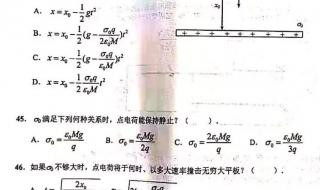 x₀
σ₀
+ + + + + + + + +
A. x = x₀ - \frac{1}{2}gt²
B. x = x₀ - \frac{1}{2}(g - \frac{σ₀q}{2ε₀M})t²
C. x = x₀ - \frac{1}{2}(g - \frac{σ₀q}{ε₀M})t²
D. x = x₀ - \frac{1}{2}\frac{σ₀q}{ε₀M}t²
45. σ₀满足下列何种关系时，点电荷能保持静止？（ ）.
A. σ₀ = \frac{ε₀Mg}{q} B. σ₀ = \frac{ε₀Mg}{2q} C. σ₀ = \frac{2ε₀Mg}{q} D. σ₀ = \frac{ε₀Mg}{3q}
46. 如果σ₀不够大时，点电荷将于何时、以多大速率撞击无穷大平板？（ ）.
2x₀